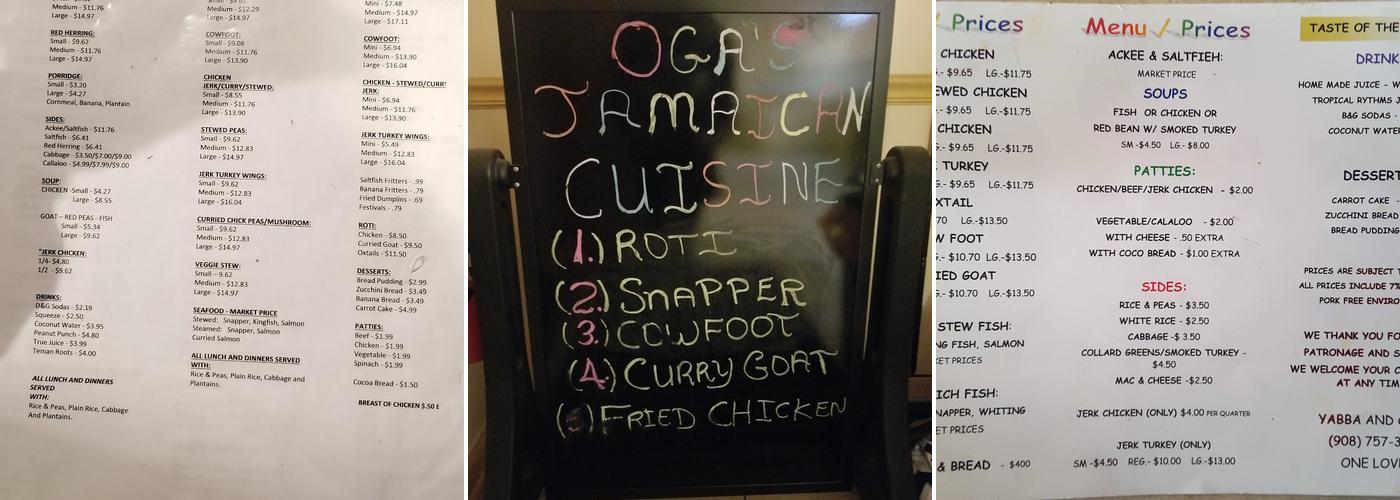 Medium - $11.76
Large - $14.97
RED HERRING:
Small - $9.62
Medium - $11.76
Large - $14.97
PORRIDGE:
Small - $3.20
Large - $4.27
Cornmeal, Banana, Plantain
SIDES:
Ackee/Saltfish - $11.76
Saltfish - $6.41
Red Herring - $6.41
Cabbage - $3.50/$7.00/$9.00
Callaloo - $4.99/$7.99/$9.00
SOUP:
CHICKEN -Small - $4.27
Large - $8.55
GOAT – RED PEAS - FISH
Small - $5.34
Large - $9.62
"JERK CHICKEN:
1/4- $4.80
1/2 - $9.62
DRINKS:
D&G Sodas - $2.19
Squeeze - $2.50
Coconut Water - $3.95
Peanut Punch - $4.80
True Juice - $3.99
Teman Roots - $4.00
ALL LUNCH AND DINNERS
SERVED
WITH:
Rice & Peas, Plain Rice, Cabbage
And Plantains.
Medium - $12.29
Large - $14.97
COWFOOT:
Small - $9.08
Medium - $11.76
Large - $13.90
CHICKEN
JERK/CURRY/STEWED:
Small - $8.55
Medium - $11.76
Large - $13.90
STEWED PEAS:
Small - $9.62
Medium - $12.83
Large - $14.97
JERK TURKEY WINGS:
Small - $9.62
Medium - $12.83
Large - $16.04
CURRIED CHICK PEAS/MUSHROOM:
Small - $9.62
Medium - $12.83
Large - $14.97
VEGGIE STEW:
Small – 9.62
Medium - $12.83
Large - $14.97
SEAFOOD - MARKET PRICE
Stewed: Snapper, Kingfish, Salmon
Steamed: Snapper, Salmon
Curried Salmon
ALL LUNCH AND DINNERS SERVED
WITH:
Rice & Peas, Plain Rice, Cabbage and
Plantains.
Mini - $7.48
Medium - $14.97
Large - $17.11
COWFOOT:
Mini - $6.94
Medium - $13.90
Large - $16.04
CHICKEN - STEWED/CURRY
JERK:
Mini - $6.94
Medium - $11.76
Large - $13.90
JERK TURKEY WINGS:
Mini - $5.49
Medium - $12.83
Large - $16.04
Saltfish Fritters - .99
Banana Fritters - .79
Fried Dumplins - .69
Festivals - .79
ROTI:
Chicken - $8.50
Curried Goat - $9.50
Oxtails - $11.50
DESSERTS:
Bread Pudding - $2.99
Zucchini Bread - $3.49
Banana Bread - $3.49
Carrot Cake - $4.99
PATTIES:
Beef - $1.99
Chicken - $1.99
Vegetable - $1.99
Spinach - $1.99
Cocoa Bread - $1.50
BREAST OF CHICKEN $.50 E
OGA'S
JAMAICAN
CUISINE
(1.) ROTI
(2.) SNAPPER
(3.) COWFOOT
(4.) CURRY GOAT
(5) FRIED CHICKEN
/ Prices
CHICKEN
.- $9.65 LG.-$11.75
EWED CHICKEN
.- $9.65 LG.-$11.75
CHICKEN
.- $9.65 LG.-$11.75
TURKEY
G.- $9.65 LG.-$11.75
XTAIL
70 LG.-$13.50
W FOOT
.- $10.70 LG.-$13.50
IED GOAT
G.- $10.70 LG.-$13.50
STEW FISH:
NG FISH, SALMON
KET PRICES
ICH FISH:
NAPPER, WHITING
ET PRICES
& BREAD - $400
Menu / Prices
ACKEE & SALTFIEH:
MARKET PRICE
SOUPS
FISH OR CHICKEN OR
RED BEAN W/ SMOKED TURKEY
SM -$4.50 LG.- $8.00
PATTIES:
CHICKEN/BEEF/JERK CHICKEN - $2.00
VEGETABLE/CALALOO - $2.00
WITH CHEESE - .50 EXTRA
WITH COCO BREAD - $1.00 EXTRA
SIDES:
RICE & PEAS - $3.50
WHITE RICE - $2.50
CABBAGE -$ 3.50
COLLARD GREENS/SMOKED TURKEY -
$4.50
MAC & CHEESE -$2.50
JERK CHICKEN (ONLY) $4.00 PER QUARTER
JERK TURKEY (ONLY)
SM -$4.50 REG.- $10.00 LG.-$13.00
TASTE OF THE
DRINK
HOME MADE JUICE - W
TROPICAL RYTHMS J
B&G SODAS -
COCONUT WATER
DESSERT
CARROT CAKE -
ZUCCHINI BREAD
BREAD PUDDING
PRICES ARE SUBJECT T
ALL PRICES INCLUDE 7%
PORK FREE ENVIRO
WE THANK YOU FO
PATRONAGE AND S
WE WELCOME YOUR C
AT ANY TIM
YABBA AND C
(908) 757-3
ONE LOV